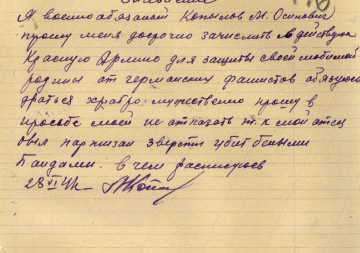 Я военнообязаный Копылов М. Осипович
прошу меня досрочно зачислить в действую
Красную Армию для защиты своей любимой
родины от германских фашистов обязуюсь
драться храбро, мужественно прошу в
просьбе моей не отказать т. к мой отец
был партизан зверски убит белыми
бандами. в чем расписуюсь
28 VI 41 г.